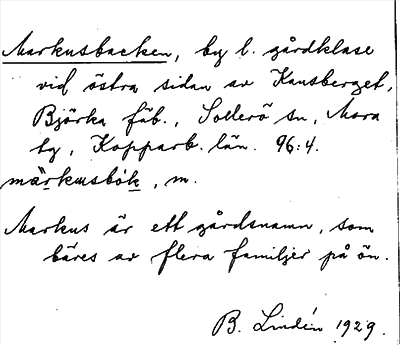 Markusbacken, by l. gårdklase
vid östra sidan av Kansberget,
Björka fäb., Sollerö sn, Mora
tg, Kopparb. län. 96:4.
märkusbók, m.
Markus är ett gårdsnamn, som
bäres av flera familjer på ön.
B. Lindén 1929.